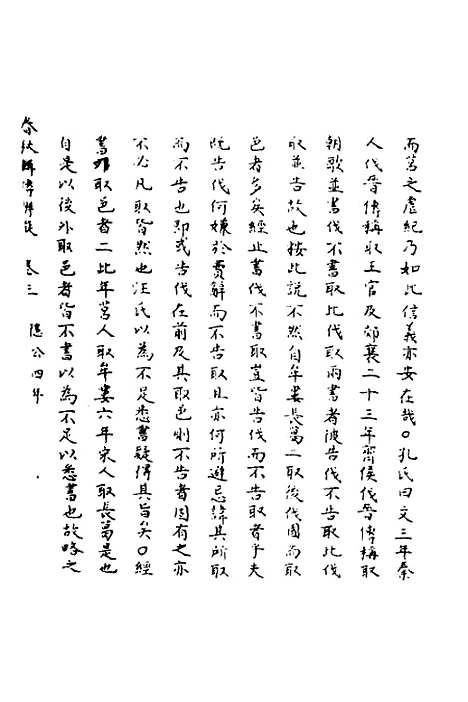 而莒之虐紀乃如此信義亦安在哉〇孔氏曰文三年秦
人伐晉傳稱取王官及郊襄二十三年齊侯伐晉傳稱取
朝歌並書伐不書取此伐取兩書者彼告伐不告取此伐
取並告故也按此說不然自牟婁長葛二取後伐國而取
邑者多矣經止書伐不書取豈皆告伐而不告取者乎夫
既告伐何嫌於費辭而不告取且亦何所避忌諱其所取
而不告也即或告伐在前及其取邑則不告者固有之亦
不必凡取皆然也汪氏以為不足悉書疑得其旨矣〇經
書外取邑者二此年莒人取牟婁六年宋人取長葛是也
自是以後外取邑者皆不書以為不足以悉書也故略之
春秋 卷三 隱公四年